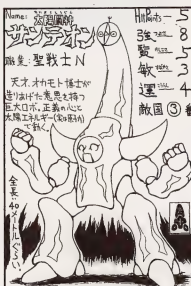 Name:
太陽闘神
サンテオン
職業:聖戦士N
天才、オカモト博士が
造りあげた意思を持つ
巨大ロボ。正義の心と
太陽エネルギー
で動く
全長:40メートルぐらい。
HitPoints 5
強 8
賢 5
敏 3
運 4
敵国 ③